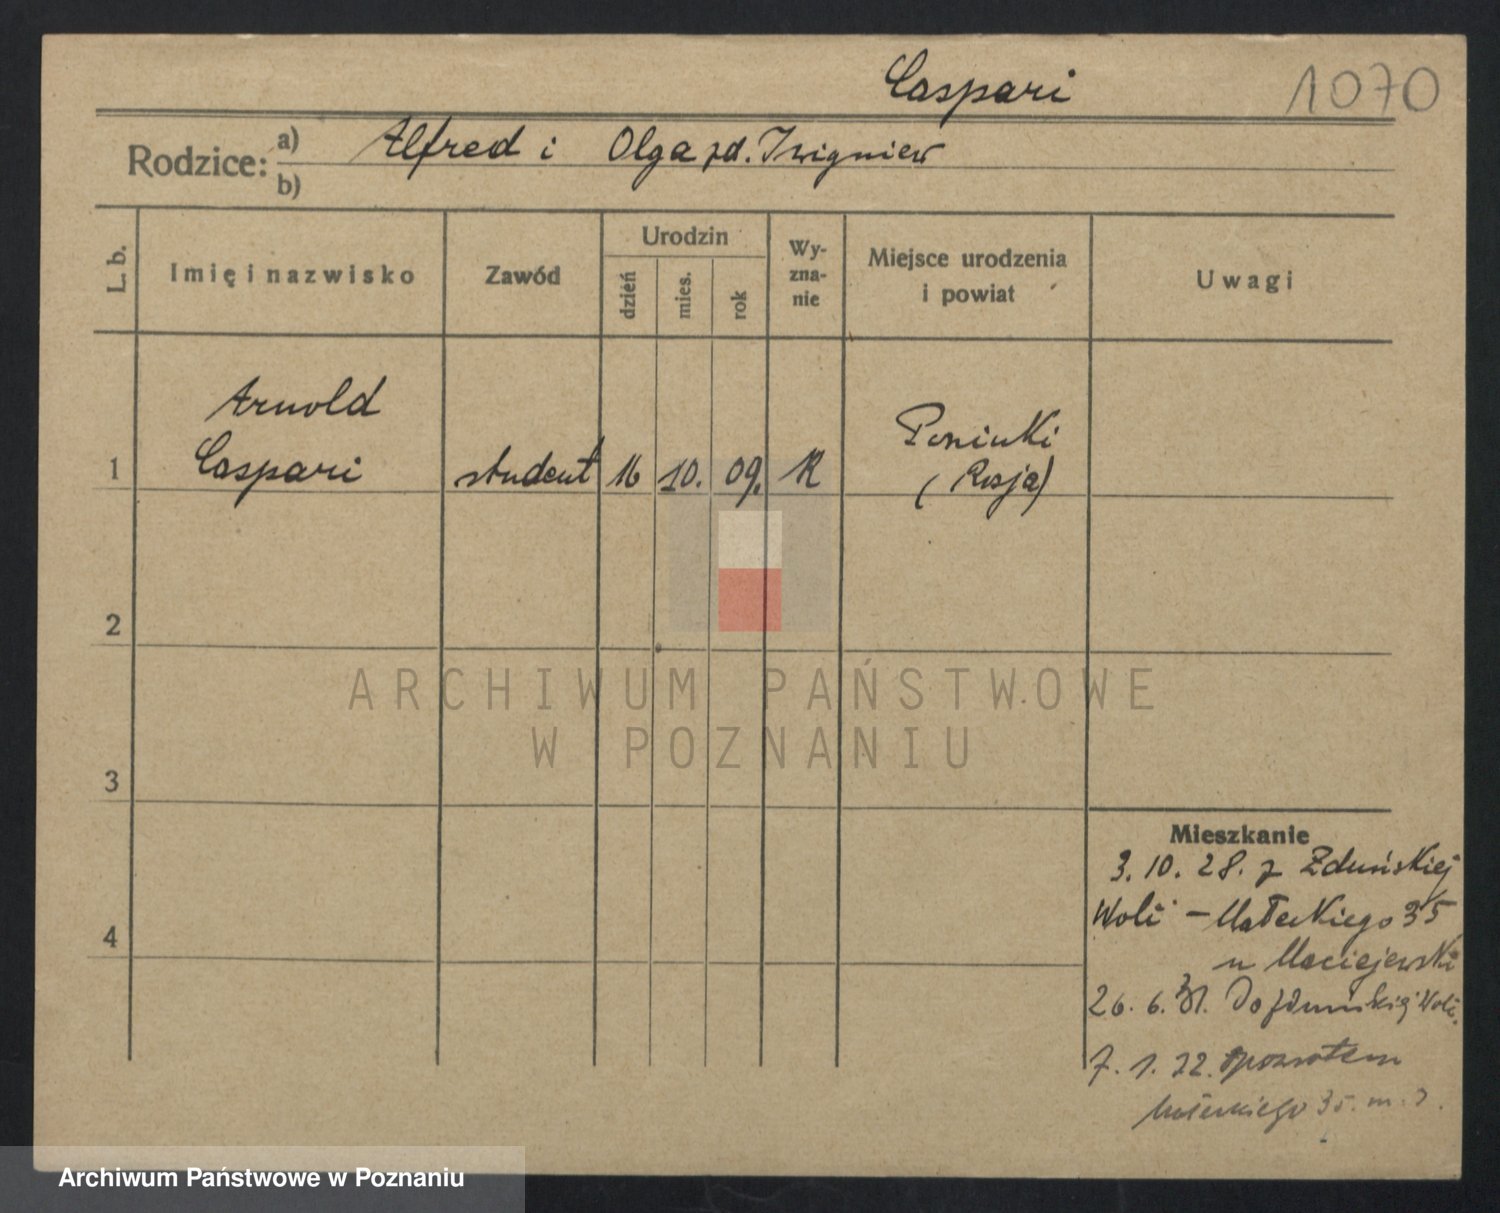 Caspari 1070
Rodzice: a) Alfred i Olga zd. Zwigniew
b)
L. b. Imię i nazwisko Zawód Urodzin dzień mies. rok Wy-zna-nie Miejsce urodzenia i powiat Uwagi
Arnold
1 Caspari student 16 10. 09. R (Rosja)
2
3
4
Mieszkanie
3. 10. 28. z Zduńskiej
Woli - Małeckiego 35
u Maciejewski
26. 6. 31. Do Zduńskiej Woli.
7. 1. 32. spowrotem
Małeckiego 35. m.
ARCHIWUM PAŃSTWOWE
W POZNANIU
Archiwum Państwowe w Poznaniu